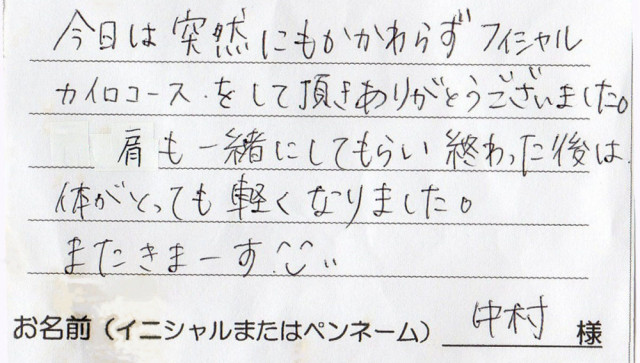 今日は突然にもかかわらずフィシャル
カイロコースをして頂きありがとうございました。
肩も一緒にしてもらい終わった後は
体がとっても軽くなりました。
またきまーす
お名前（イニシャルまたはペンネーム） 中村 様